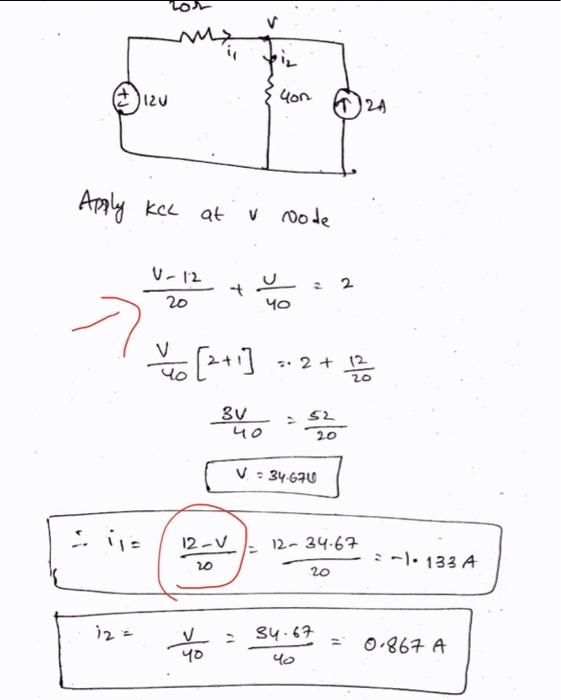 20Ω
V
i₁
i₂
12V
40Ω
2A
Apply KCL at V node
V-12/20 + V/40 = 2
V/40 [2+1] = 2 + 12/20
3V/40 = 52/20
V = 34.67V
∴ i₁ = 12-V/20 = 12-34.67/20 = -1.133 A
i₂ = V/40 = 34.67/40 = 0.867 A